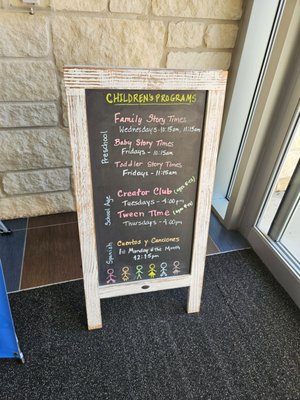 CHILDREN'S PROGRAMS
Preschool
Family Story Times
Wednesdays 10:15am, 11:15am
Baby Story Times
Fridays - 10:15am
Toddler Story Times
Fridays - 11:15am
School Age
Creator Club (Ages 5-12)
Tuesdays - 4:00pm
Tween Time
Thursdays - 4:00pm
Spanish
Cuentos y Canciones
1st Monday of the Month
12:15pm